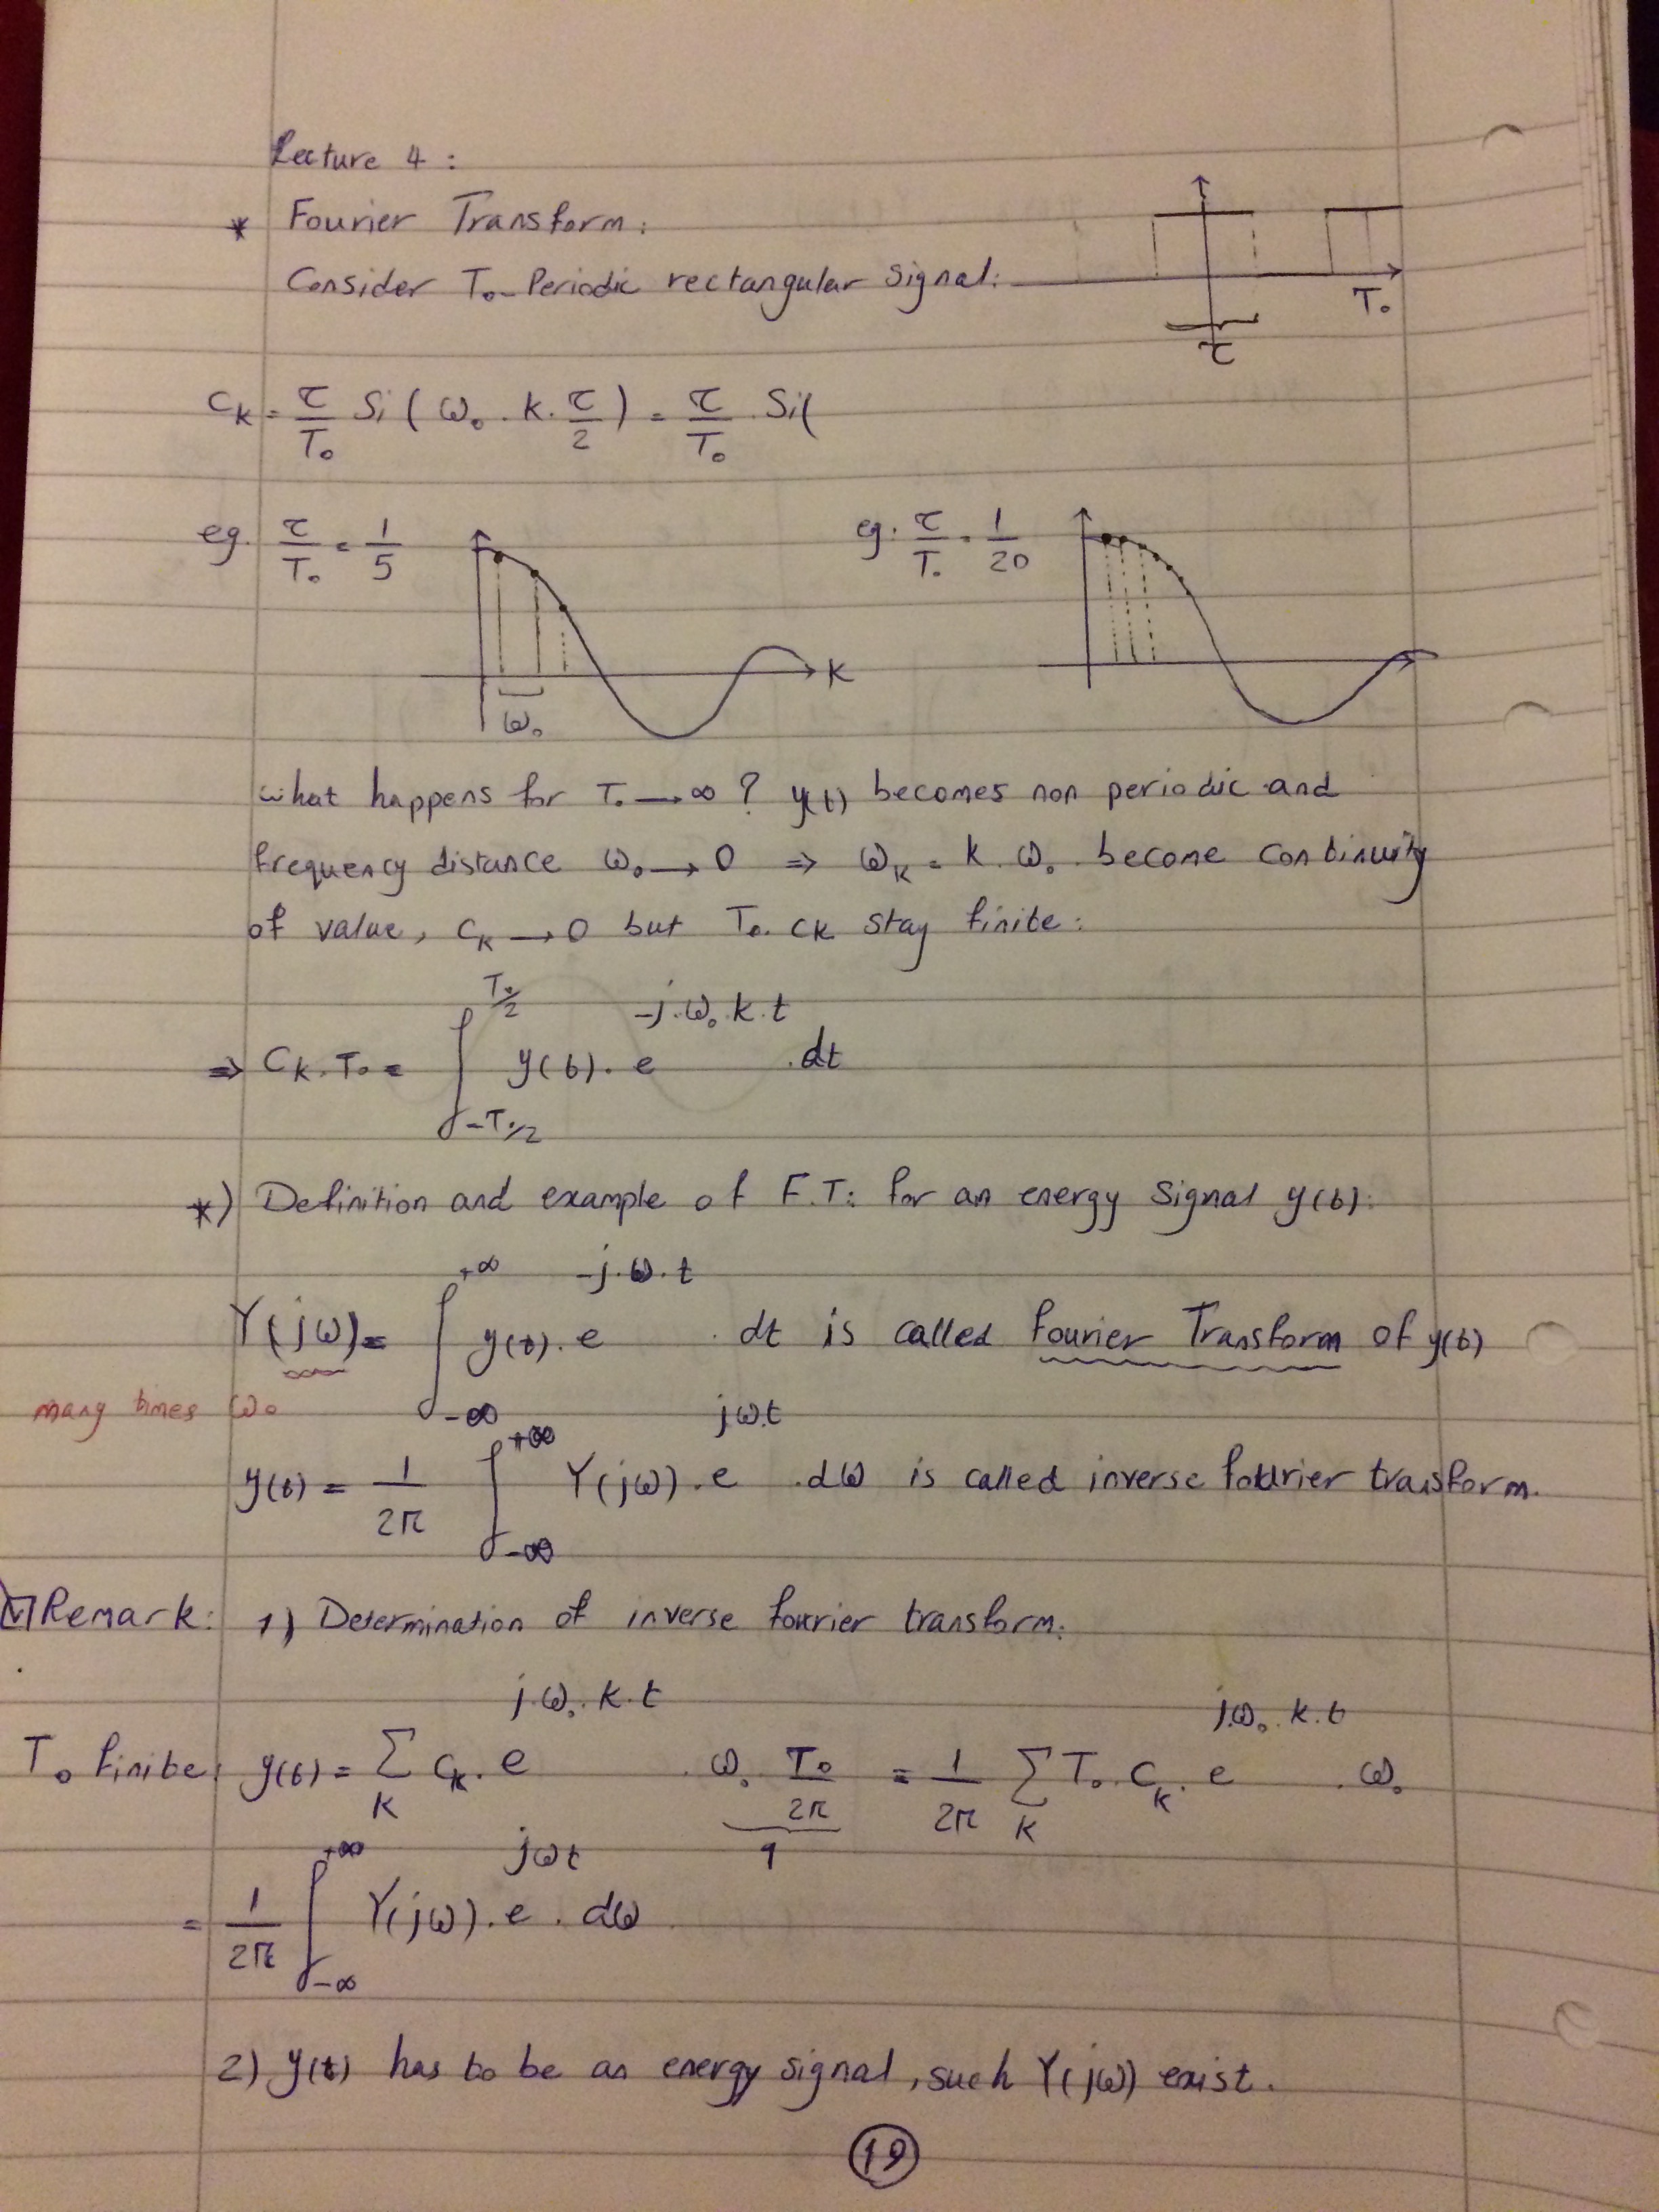 Lecture 4 :
* Fourier Transform:
Consider T₀-Periodic rectangular signal:
T₀
τ
cₖ = τ/T₀ Si( ω₀ . k . τ/2 ) = τ/T₀ . Si(
eg. τ/T₀ = 1/5
K
ω₀
eg. τ/T₀ = 1/20
what happens for T₀ → ∞ ? y(t) becomes non periodic and
frequency distance ω₀ → 0 ⇒ ωₖ = k . ω₀ become continuity
of value, cₖ → 0 but T₀. cₖ stay finite:
⇒ cₖ . T₀ = ∫_{-T₀/2}^{T₀/2} y(t) . e^{-j.ω₀.k.t} . dt
*) Definition and example of F.T: for an energy signal y(t):
Y(jω) = ∫_{-∞}^{+∞} y(t) . e^{-j.ω.t} . dt is called Fourier Transform of y(t)
many times ω₀
y(t) = 1/2π ∫_{-∞}^{+∞} Y(jω) . e^{jω.t} . dω is called inverse fourier transform.
Remark: 1) Determination of inverse fourier transform:
T₀ finite: y(t) = Σ_k cₖ . e^{j.ω₀.k.t} . ω₀ . T₀/2π = 1/2π Σ_k T₀ . cₖ . e^{j.ω₀.k.t} . ω₀
1
= 1/2π ∫_{-∞}^{+∞} Y(jω) . e^{jωt} . dω
2) y(t) has to be an energy signal, such Y(jω) exist.
19